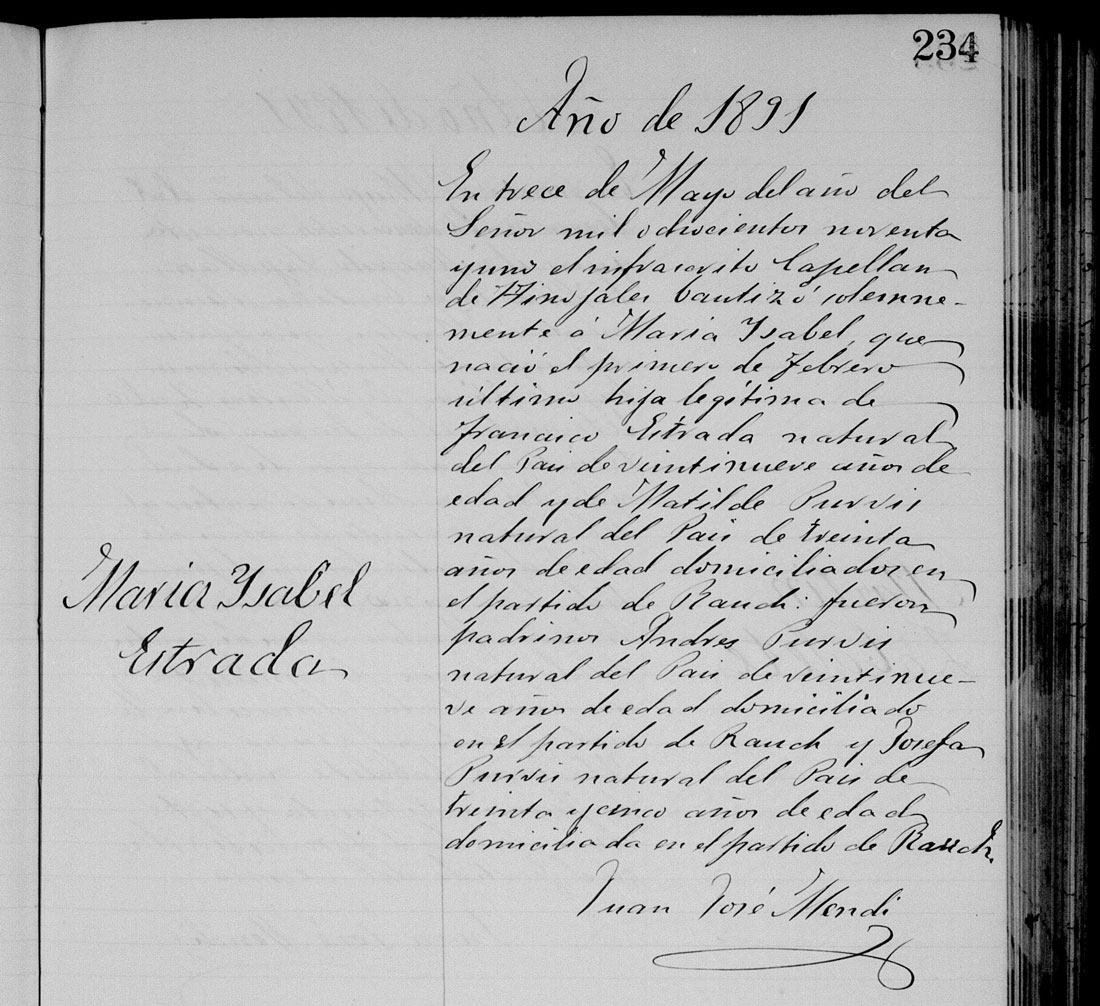 234
Año de 1891
En trece de Mayo del año del
Señor mil ochocientos noventa
y uno el infrascrito Capellan
de Hinojales bautizó solemne-
mente á Maria Ysabel, que
nació el primero de Febrero
último hija legítima de
Francisco Estrada natural
del Pais de veintinueve años de
edad y de Matilde Purvis
natural del Pais de treinta
años de edad domiciliados en
el partido de Rauch: fueron
padrinos Andres Purvis
natural del Pais de veintinue-
ve años de edad domiciliado
en el partido de Rauch y Josefa
Purvis natural del Pais de
treinta y cinco años de edad
domiciliada en el partido de Rauch.
Maria Ysabel
Estrada
Juan José Mendi